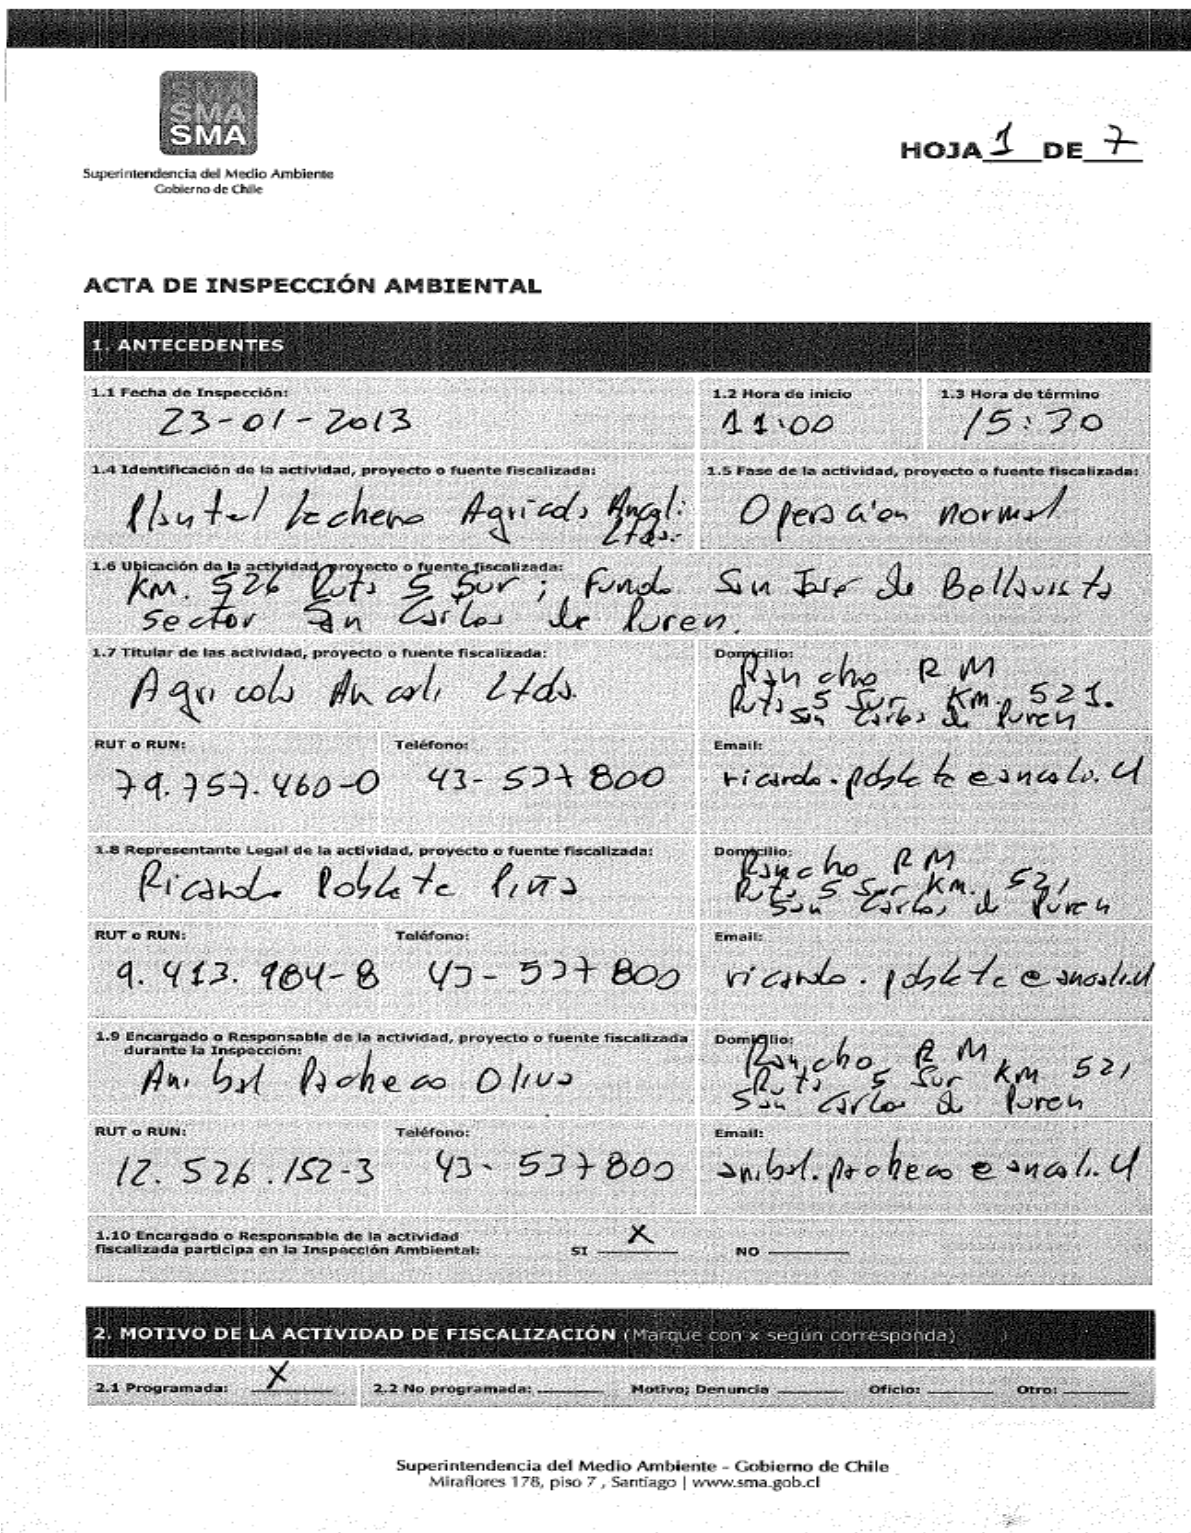 SMA
SMA
SMA
Superintendencia del Medio Ambiente
Gobierno de Chile
HOJA 1 DE 7
ACTA DE INSPECCIÓN AMBIENTAL
1. ANTECEDENTES
1.1 Fecha de Inspección:
23-01-2013
1.2 Hora de inicio
11:00
1.3 Hora de término
15:30
1.4 Identificación de la actividad, proyecto o fuente fiscalizada:
Plantel Lechero Agricola Ancali
Ltda.
1.5 Fase de la actividad, proyecto o fuente fiscalizada:
Operación normal
1.6 Ubicación de la actividad, proyecto o fuente fiscalizada:
Km. 526 Ruta 5 Sur; Fundo San Jose de Bellavista
sector San Carlos de Puren.
1.7 Titular de las actividad, proyecto o fuente fiscalizada:
Agricola Ancali Ltda.
Domicilio:
Rancho RM
Ruta 5 Sur Km. 521.
San Carlos de Puren
RUT o RUN:
79.757.460-0
Teléfono:
43-537800
Email:
ricardo.poblete@ancali.cl
1.8 Representante Legal de la actividad, proyecto o fuente fiscalizada:
Ricardo Poblete Piña
Domicilio:
Rancho RM
Ruta 5 Sur Km. 521
San Carlos de Puren
RUT o RUN:
9.413.984-8
Teléfono:
43-537800
Email:
ricardo.poblete@ancali.cl
1.9 Encargado o Responsable de la actividad, proyecto o fuente fiscalizada
durante la Inspección:
Anibal Pacheco Oliva
Domicilio:
Rancho RM
Ruta 5 Sur Km 521
San Carlos de Puren
RUT o RUN:
12.526.152-3
Teléfono:
43-537800
Email:
anibal.pacheco@ancali.cl
1.10 Encargado o Responsable de la actividad
fiscalizada participa en la Inspección Ambiental:
SI X NO
2. MOTIVO DE LA ACTIVIDAD DE FISCALIZACIÓN (Marque con x según corresponda)
2.1 Programada: X 2.2 No programada: Motivo; Denuncia Oficio: Otro:
Superintendencia del Medio Ambiente - Gobierno de Chile
Miraflores 178, piso 7, Santiago | www.sma.gob.cl